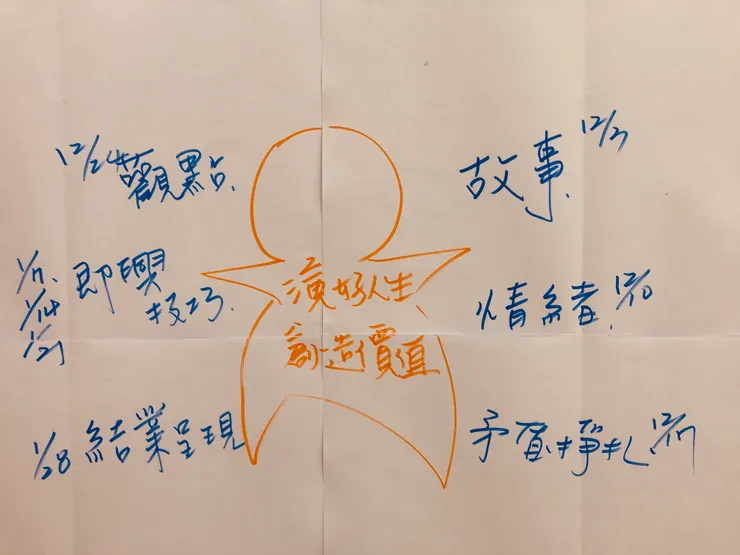 12/24 觀點.
1/7.
1/14
1/21
即興
技巧.
1/28 結業呈現
演好人生
創造價值
故事. 12/3
情緒. 12/10
矛盾掙扎 12/17